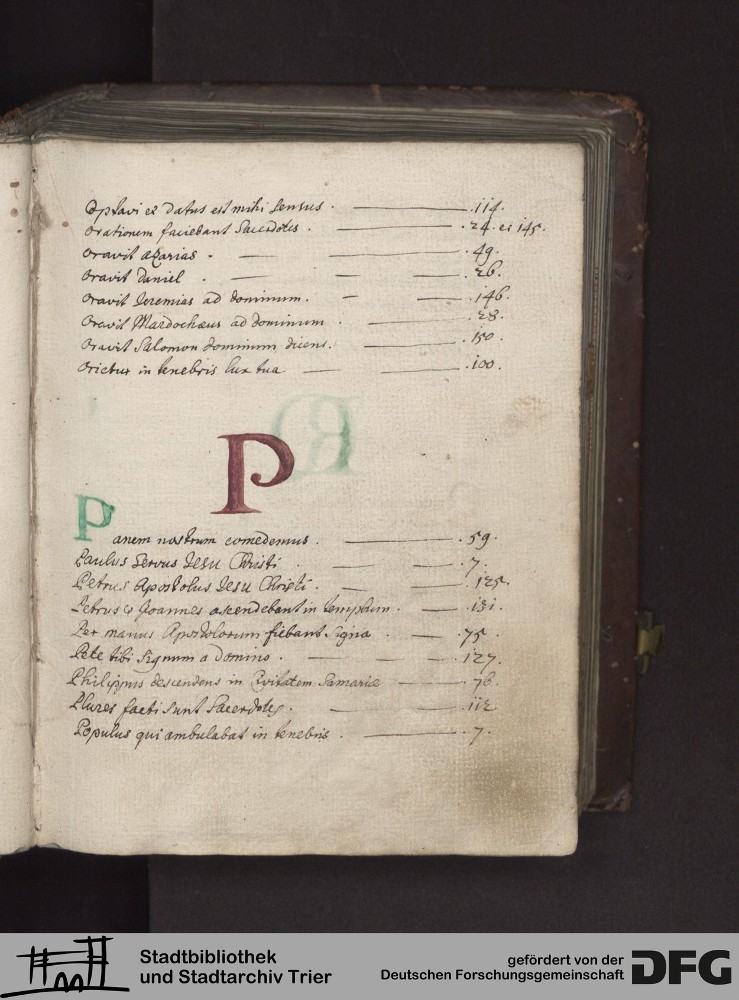 Optavi et datus est mihi sensus . — .114.
Orationem faciebant Sacerdotes . — .24. et 145.
Oravit Azarias . — — — .49.
Oravit Daniel . — — — .26.
Oravit Jeremias ad dominum . — — .146.
Oravit Mardochæus ad dominum . — .28.
Oravit Salomon dominum dicens . — .150.
Orietur in tenebris lux tua — — .100.
P
Panem nostrum comedemus . — .59.
Paulus servus Jesu Christi . — — .7.
Petrus Apostolus Jesu Christi . — — .125.
Petrus et Joannes ascendebant in templum . — .131.
Per manus Apostolorum fiebant signa . — — .75.
Pete tibi signum a domino . — — .127.
Philippus descendens in Civitatem Samariæ — .76.
Plures facti sunt Sacerdotes . — — .112.
Populus qui ambulabat in tenebris . — .7.
Stadtbibliothek
und Stadtarchiv Trier
gefördert von der
Deutschen Forschungsgemeinschaft
DFG